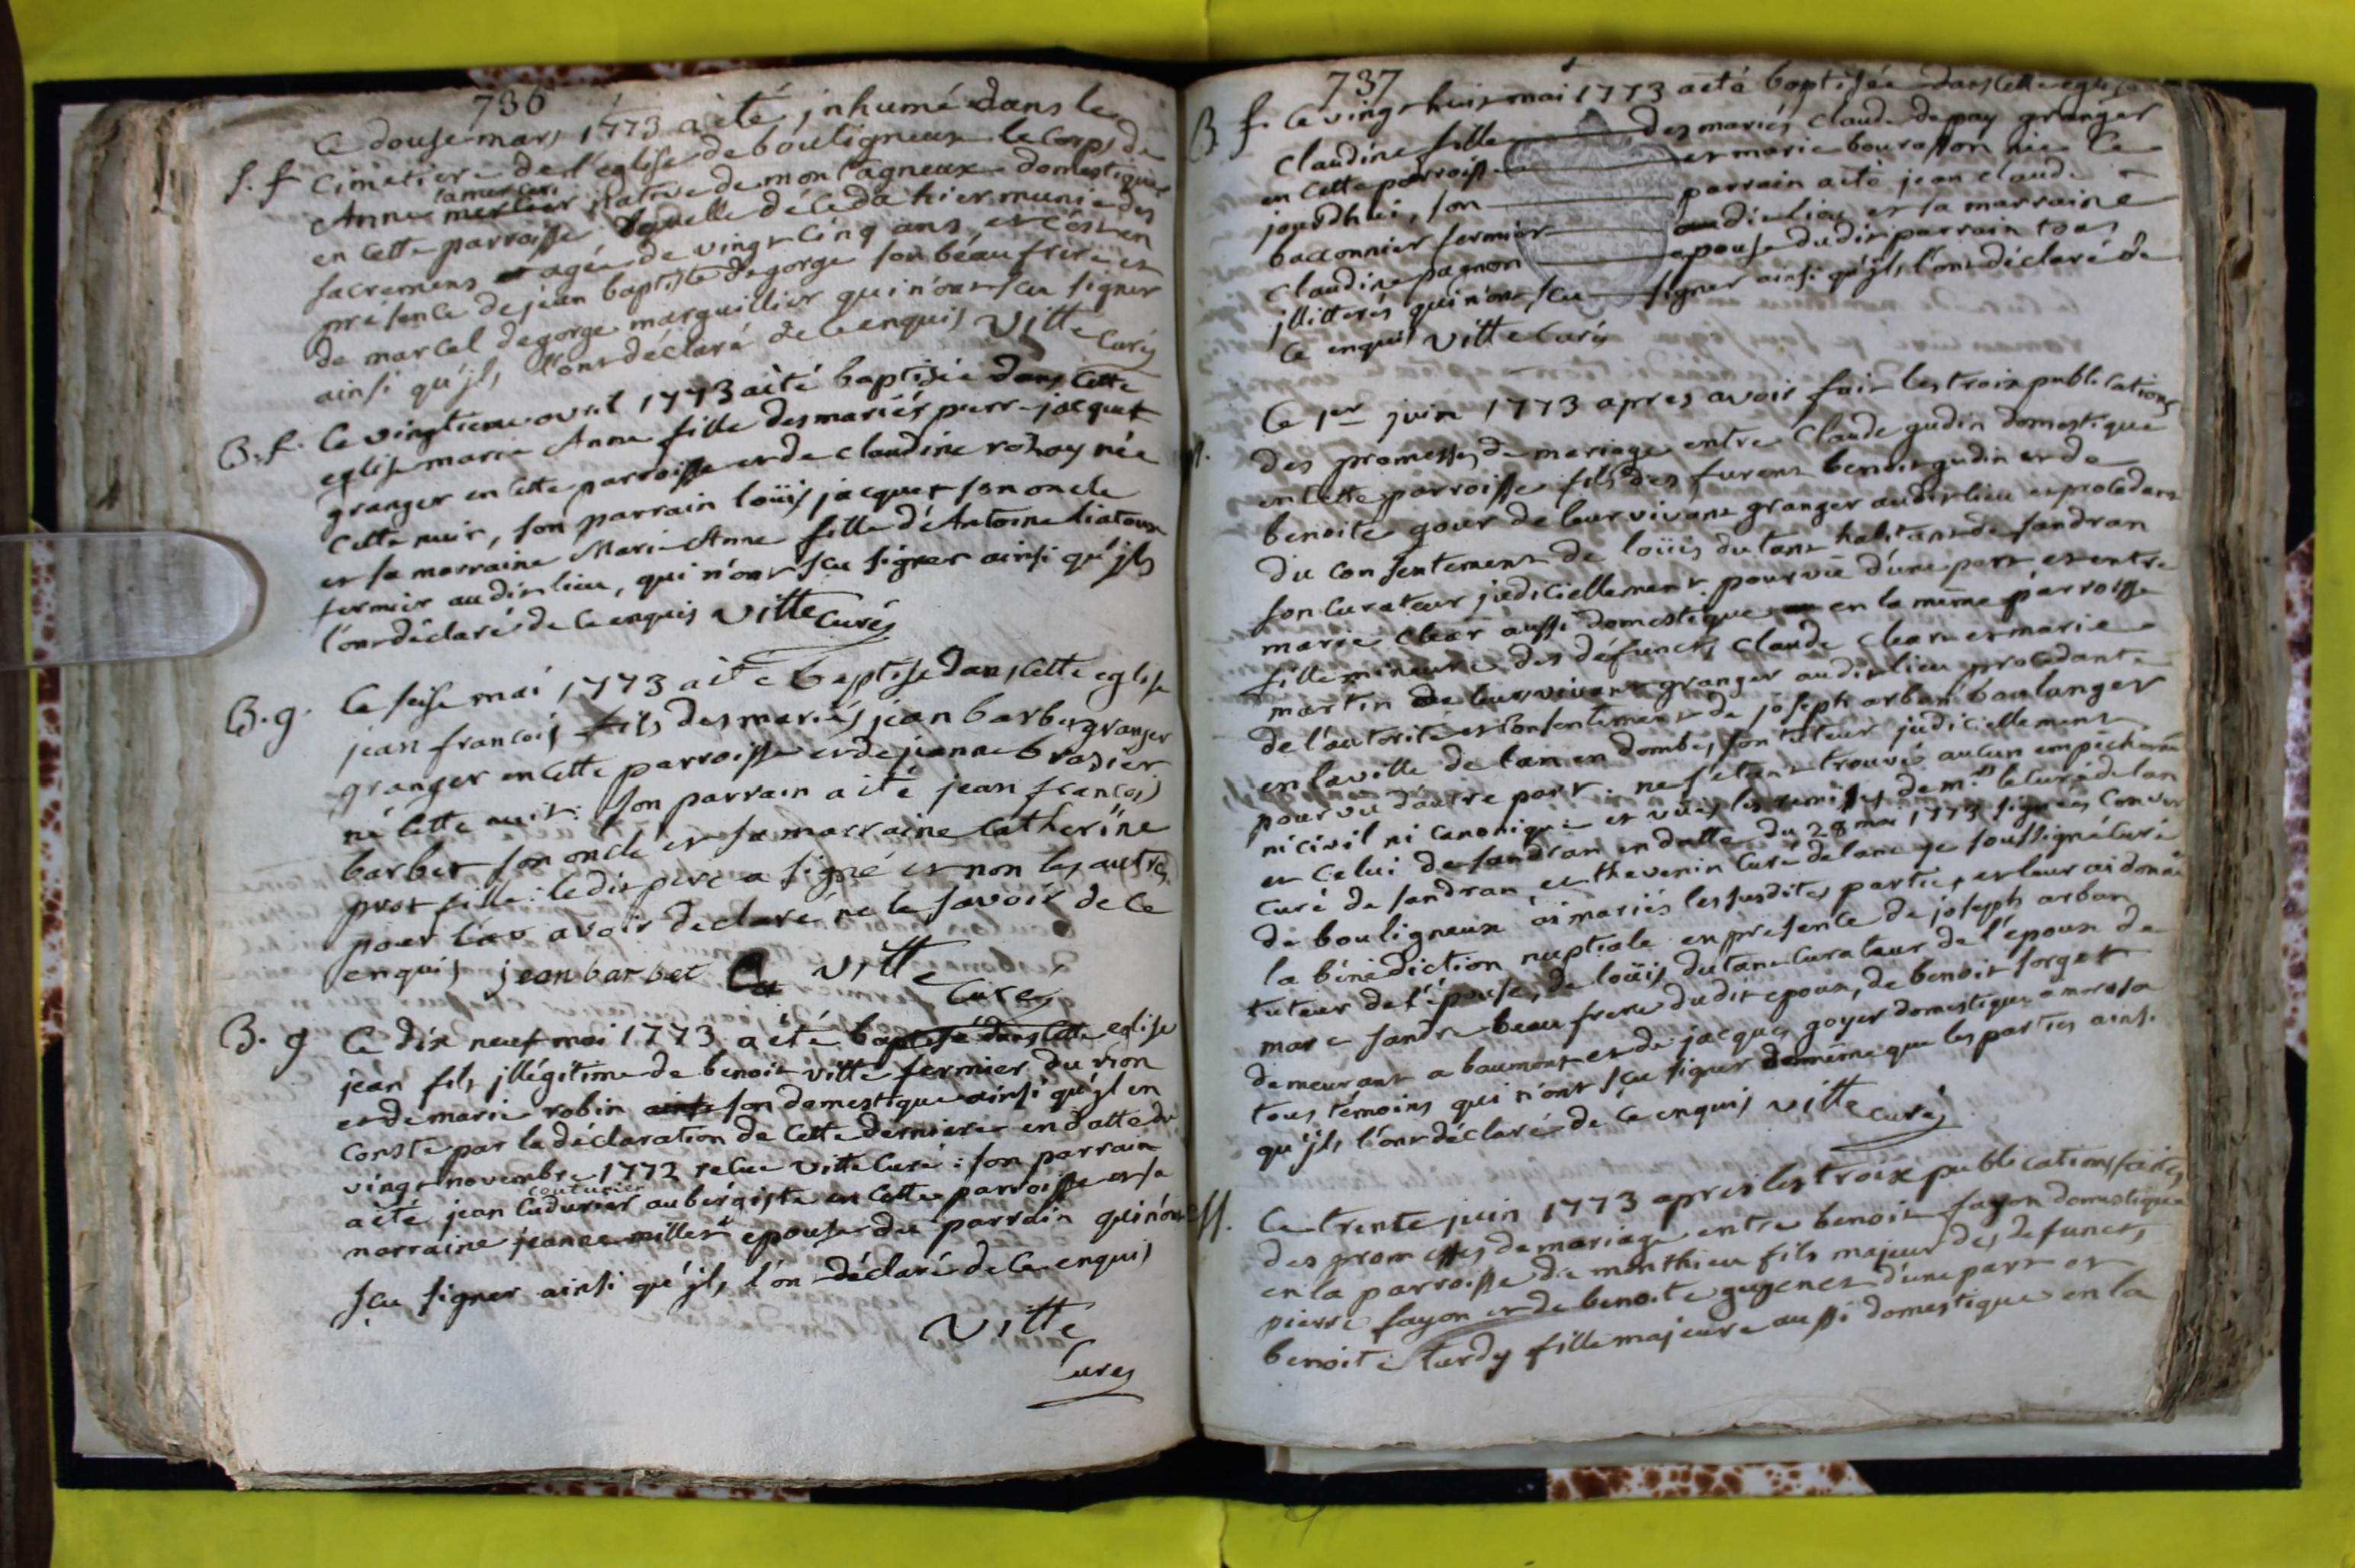 736
Ce douse mars 1773 a eté jnhumé dans le
S. f cimetiere de l'eglise de bouligneux le corps de
Anne lamercier native de montagneux domestique
en cette parroisse laquelle déceda hier munie des
sacremens agée de vingt cinq ans, et c'est en
présence de jean baptiste degorge son béaufrere et
de marcel degorge marguillier qui n'ont sçu signer
ainsi qu'jls l'ont déclaré de ce enquis Vitte Curé
B. f. Ce vingtieme avril 1773 a été baptisée dans cette
eglise marie Anne fille des mariés pierre jacquet
granger en cette parroisse et de claudine rozay née
cette nuit, son parrain loüis jacquet son oncle
et sa marraine Marie Anne fille d'Antoine liatoux
fermier audit lieu, qui n'ont sçu signer ainsi qu'jls
l'ont déclaré de ce enquis Vitte Curé
B. g. Ce seise mai 1773 a eté baptisé dans cette eglise
jean françois fils des mariés jean barbet granger
granger en cette parroisse et de jeanne brasier
né cette nuit: son parrain a eté jean françois
barbet son oncle et sa marraine Catherine
prost fille: ledit pere a signé et non les autres
pour l'av avoir declaré ne le savoir de ce
enquis jean barbet Vitte
Curé
B. g Ce dix neuf mai 1773 a été baptisé dans cette eglise
jean fils jllégitime de benoit vitte fermier du rion
et de marie robin son domestique ainsi qu'jl en
conste par la déclaration de cette derniere en datte du
vingt novembre 1772 relue Vitte Curé: son parrain
couturier
a eté jean Cudurier aubergiste en cette parroisse et sa
marraine jeanne millet epouse du parrain qui n'ont
sçu signer ainsi qu'jls l'ont déclaré de ce enquis
Vitte
Curé
737
B f. Ce vingt huit mai 1773 a eté baptisée dans cette eglise
Claudine fille des mariés Claude depay granger
en cette parroisse et marie bourasson née ce
jourdhui, son parrain a eté jean claude
baconnier fermier audit lieu et sa marraine
Claudine pagnon epouse dudit parrain tous
jllitterés qui n'ont sçu signer ainsi qu'jls l'ont déclaré de
ce enquis Vitte Curé
Ce 1er juin 1773 apres avoir fait les trois publications
des promesses de mariage entre Claude gudin domestique
en cette parroisse fils des furent benoit gudin et de
benoite gour de leur vivant granger audit lieu et procedant
du consentement de loüis dutant habitant de sandran
son curateur judiciellement pourvu d'une part et entre
marie clear aussi domestique en la même parroisse
fille mineure des défuncts Claude clear et marie
martin de leur vivant granger audit lieu procedante
de l'autorité et consentement de joseph arban boulanger
en la ville de lan en dombes son tuteur judiciellement
pourvu d'autre part. ne s'étant trouvé aucun empêchement
ni civil ni canonique et vües les remises de mrs le Curé de lan
et celui de sandran en datte du 28 mai 1773 signées
Curé de sandran et thevenin Curé de lan je soussigné Curé
de bouligneux ai mariés les susdites parties et leur ai donné
la bénédiction nuptiale en présence de joseph arban
tuteur de l'épouse, de loüis dutant curateur de l'époux de
marc sandre beau frere dudit epoux, de benoit forget
demeurant a baumont et de jacques goyer domestique a
tous témoins qui n'ont sçu signer de même que les parties ainsi
qu'jls l'ont déclaré de ce enquis Vitte Curé
Ce trente juin 1773 apres les trois publications faites
des promesses de mariage entre benoit fayon domestique
en la parroisse de monthieu fils majeur des defuncts
pierre fayon et de benoite gugenet d'une part et
benoite turdy fille majeure aussi domestique en la